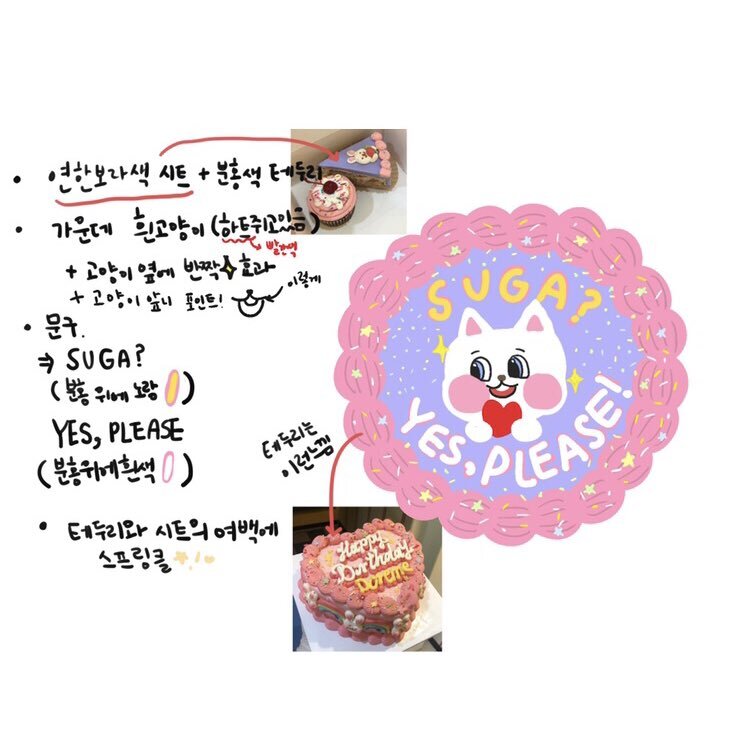 • 연한보라색 시트 + 분홍색 테두리
• 가운데 흰고양이 (하트쥐고있음)
빨간색
+ 고양이 옆에 반짝 효과
+ 고양이 앞니 포인트! 이렇게
• 문구.
⇒ SUGA?
(분홍 위에 노랑)
YES, PLEASE
(분홍위에흰색)
• 테두리와 시트의 여백에
스프링클
테두리는
이런느낌
SUGA?
YES, PLEASE!
Happy
Birthday
Doreme